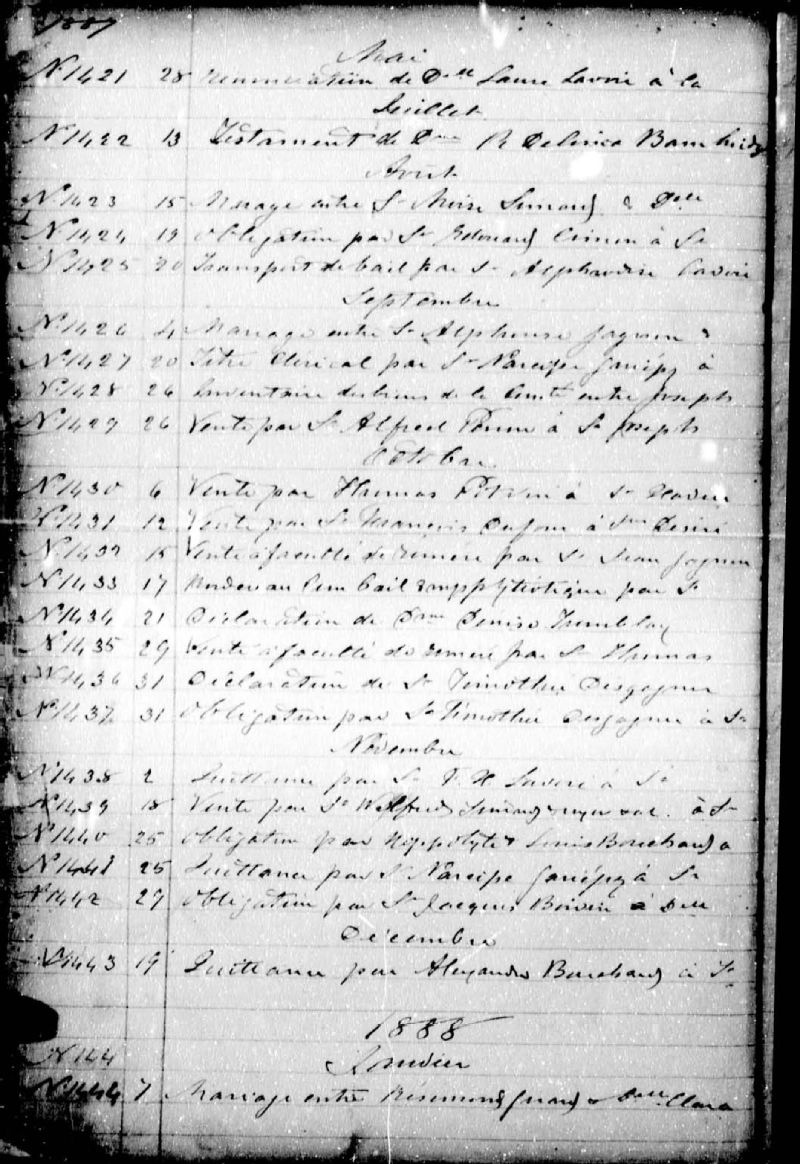 1887
Mai
No 1421 28 renonciation de Delle Laure Lavoie à la
Juillet
No 1422 13 Testament de Dme R Delima
Août
No 1423 15 Mariage entre Sr Moïse Simard & Delle
No 1424 19 Obligation par Sr Edouard Simon à Sr
No 1425 20 Transport de bail par Sr Alphonsine Lavoie
Septembre
No 1426 4 Mariage entre Sr Alphonse Gagnon &
No 1427 20 Titre Clérical par Sr Narcisse Gariépy à
No 1428 26 Inventaire des biens de la Comté entre Joseph
No 1429 26 Vente par Sr Alfred à Sr Joseph
Octobre
No 1430 6 Vente par Thomas Potvin à Sr
No 1431 12 Vente par Sr François Dufour à Sr Désiré
No 1432 15 Vente à faculté de réméré par Sr Jean Gagnon
No 1433 17 Bordereau bail emphytéotique par Sr
No 1434 21 Déclaration de Dame Denise Tremblay
No 1435 29 Vente à faculté de réméré par Sr Thomas
No 1436 31 Déclaration de Sr Timothé Desgagnés
No 1437 31 Obligation par Sr Timothé Desgagnés à Sr
Novembre
No 1438 2 Quittance par Sr F. X Lavoie à Sr
No 1439 18 Vente par Sr Wilfred Simard à Sr
No 1440 25 Obligation par Hyppolyte & Louis Bouchard à
No 1441 25 Quittance par Sr Narcisse Gariépy à Sr
No 1442 29 Obligation par Sr Jacques Boivin à Delle
Décembre
No 1443 19 Quittance par Alexandre Bouchard à Sr
1888
No 144 Janvier
No 1444 7 Mariage entre Résimond Girard & Delle Clara